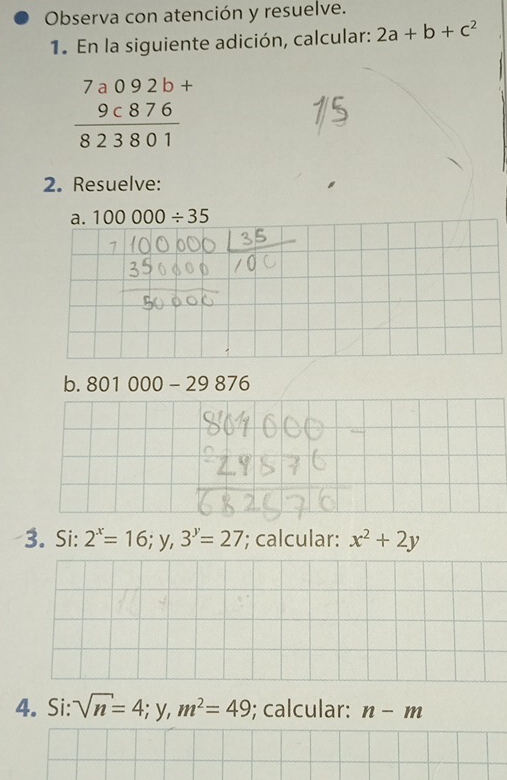 Observa con atención y resuelve.
1. En la siguiente adición, calcular: 2a + b + c²
7 a 0 9 2 b +
9 c 8 7 6
8 2 3 8 0 1
15
2. Resuelve:
a. 100 000 ÷ 35
100000 35
350000 100
50000
b. 801 000 – 29 876
801 000 –
29876
682576
3. Si: 2ˣ = 16; y, 3ʸ = 27; calcular: x² + 2y
4. Si: √n = 4; y, m² = 49; calcular: n – m